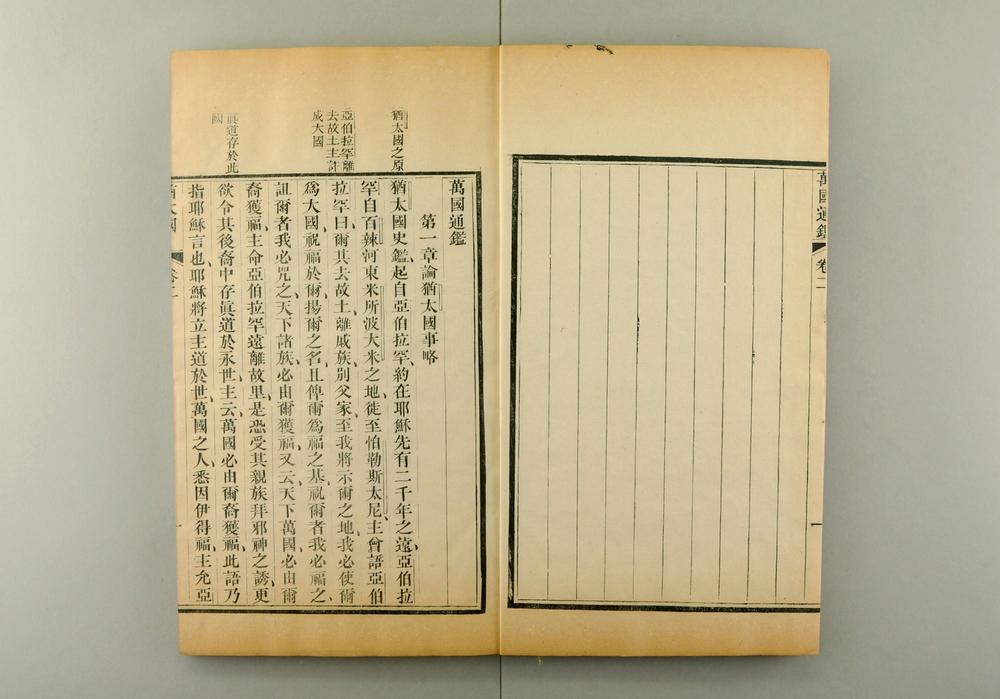 萬國通鑑
卷二
一
萬國通鑑
第一章論猶太國事略
猶太國之原
猶太國史鑑、起自亞伯拉罕、約在耶穌先有二千年之遠、亞伯拉
罕自百辣河東米所波大米之地、徙至怕勒斯太尼、主曾語亞伯
亞伯拉罕離
去故土主許
成大國
拉罕曰、爾其去故土、離戚族、別父家、至我將示爾之地、我必使爾
爲大國、祝福於爾、揚爾之名、且俾爾爲福之基、祝爾者我必福之、
詛爾者我必咒之、天下諸族、必由爾獲福、又云、天下萬國、必由爾
裔獲福、主命亞伯拉罕遠離故里、是恐受其親族拜邪神之誘、更
眞道存於此
國
欲令其後裔中存眞道於永世、主云、萬國必由爾裔獲福、此語乃
指耶穌言也、耶穌將立主道於世、萬國之人、悉因伊得福、主允亞
猶太國
卷二
一